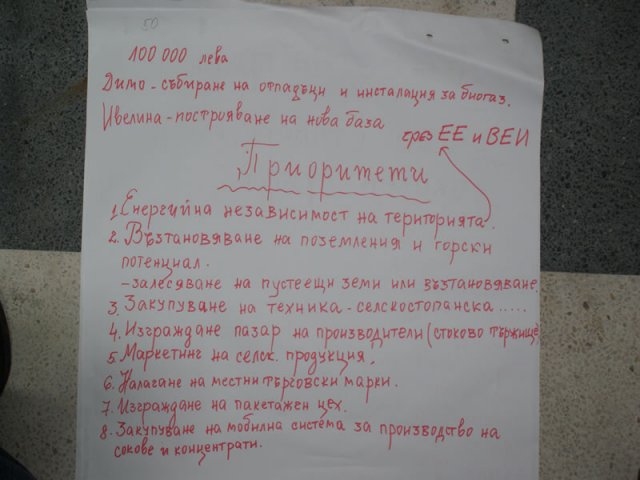 50
100 000 лева
Димо - събиране на отпадъци и инсталация за биогаз.
Ивелина - построяване на нова база
чрез ЕЕ и ВЕИ
Приоритети
1. Енергийна независимост на територията.
2. Възтановяване на поземления и горски
потенциал.
- залесяване на пустеещи земи или възтановяване.
3. Закупуване на техника - селскостопанска .....
4. Изграждане пазар на производители (стоково тържище)
5. Маркетинг на селск. продукция.
6. Налагане на местни търговски марки.
7. Изграждане на пакетажен цех.
8. Закупуване на мобилна система за производство на
сокове и концентрати.